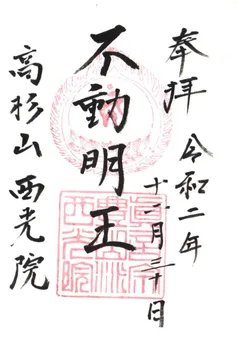 奉拝
令和二年
十一月三十日
不動明王
高杉山
西光院